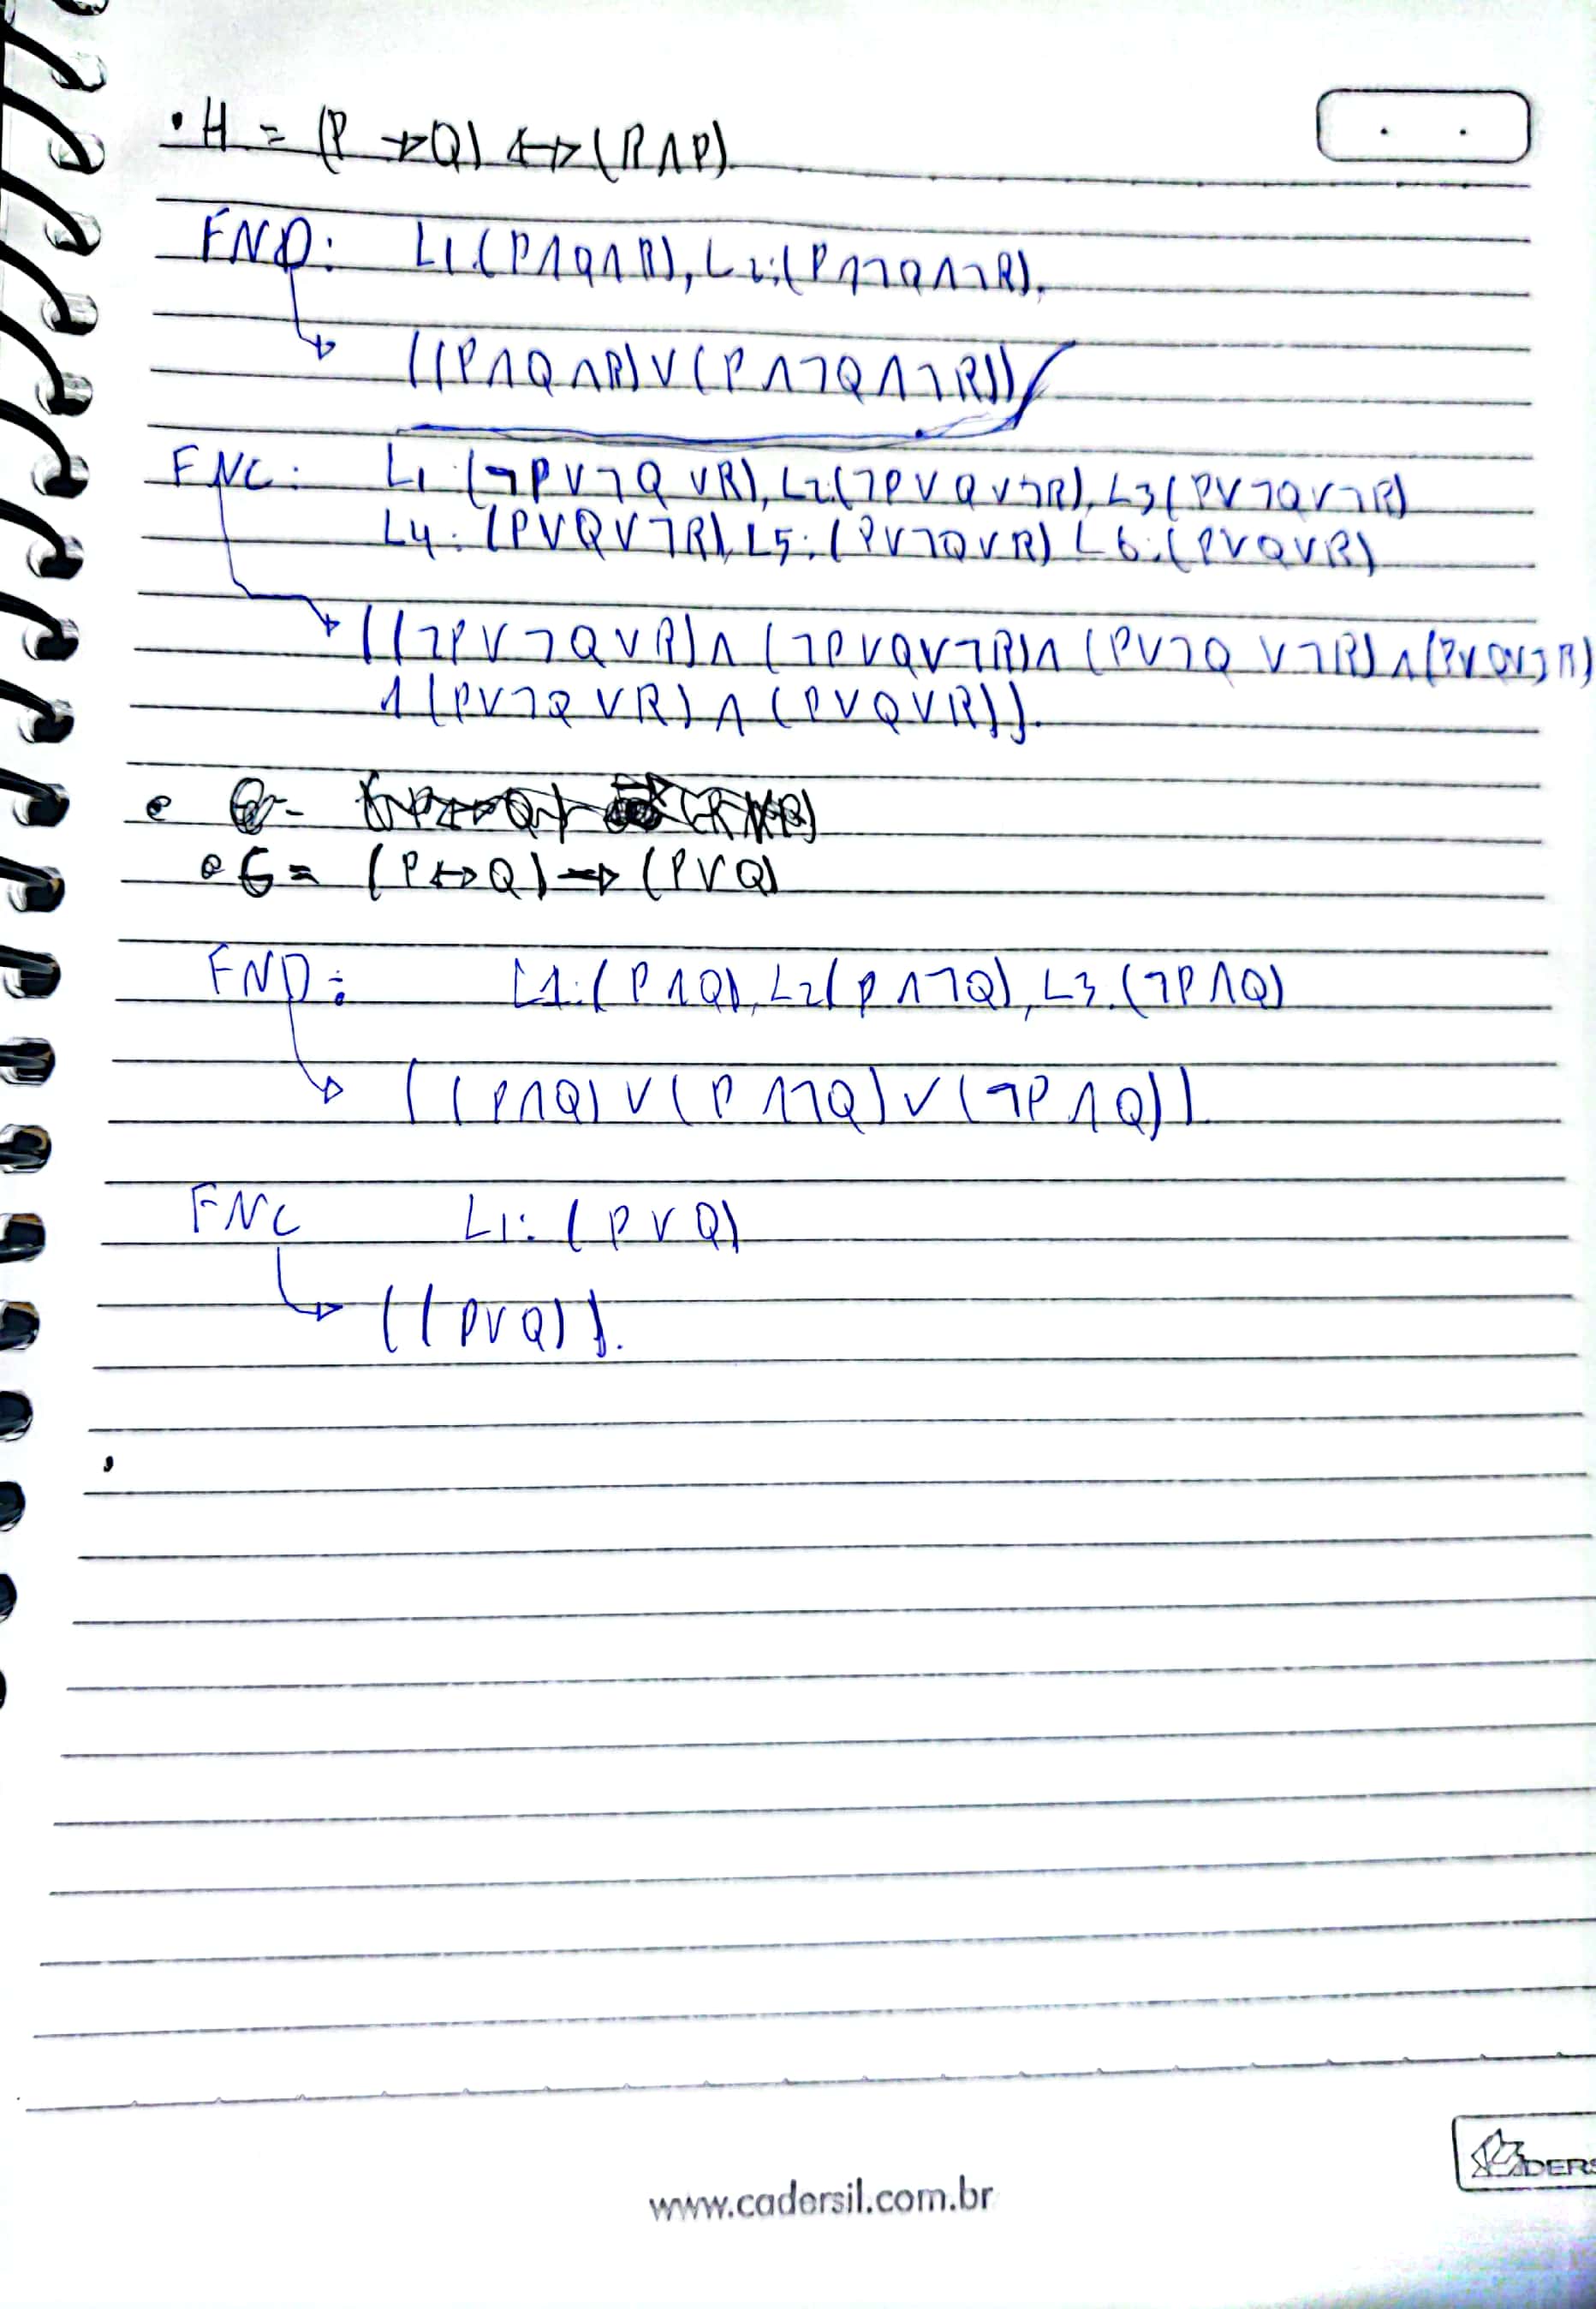 • H = (P → Q) ↔ (R ∧ P).
FND: L1.(P ∧ Q ∧ R), L2:(P ∧ ¬Q ∧ ¬R).
((P ∧ Q ∧ R) ∨ (P ∧ ¬Q ∧ ¬R))
FNC: L1:(¬P ∨ ¬Q ∨ R), L2:(¬P ∨ Q ∨ ¬R), L3(P ∨ ¬Q ∨ ¬R)
L4: (P ∨ Q ∨ ¬R), L5: (P ∨ ¬Q ∨ R) L6:(P ∨ Q ∨ R)
((¬P ∨ ¬Q ∨ R) ∧ (¬P ∨ Q ∨ ¬R) ∧ (P ∨ ¬Q ∨ ¬R) ∧ (P ∨ Q ∨ ¬R)
∧ (P ∨ ¬Q ∨ R) ∧ (P ∨ Q ∨ R)).
• G = (P ↔ Q) → (P ∨ Q)
FND: L1:(P ∧ Q), L2(P ∧ ¬Q), L3.(¬P ∧ Q)
((P ∧ Q) ∨ (P ∧ ¬Q) ∨ (¬P ∧ Q)).
FNC L1: (P ∨ Q)
((P ∨ Q)).
www.cadersil.com.br